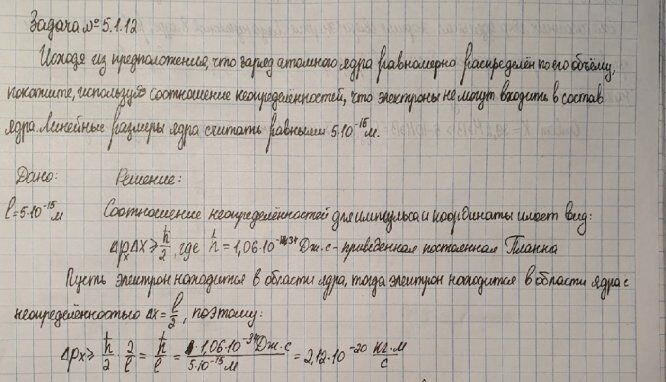 Задача № 5.1.12
Исходя из предположения, что заряд атомного ядра равномерно распределён по его объёму,
покажите, используя соотношение неопределённостей, что электроны не могут входить в состав
ядра. Линейные размеры ядра считать равными 5·10⁻¹⁵ м.
Дано: Решение:
l = 5·10⁻¹⁵ м Соотношение неопределённостей для импульса и координаты имеет вид:
Δpₓ Δx ≥ ħ/2, где ħ = 1,06·10⁻³⁴ Дж·с - приведённая постоянная Планка
Пусть электрон находится в области ядра, тогда электрон находится в области ядра с
неопределённостью Δx = l/2, поэтому:
Δpx ≥ ħ/2 · 2/l = ħ/l = 1,06·10⁻³⁴ Дж·с / 5·10⁻¹⁵ м = 2,12·10⁻²⁰ кг·м/с